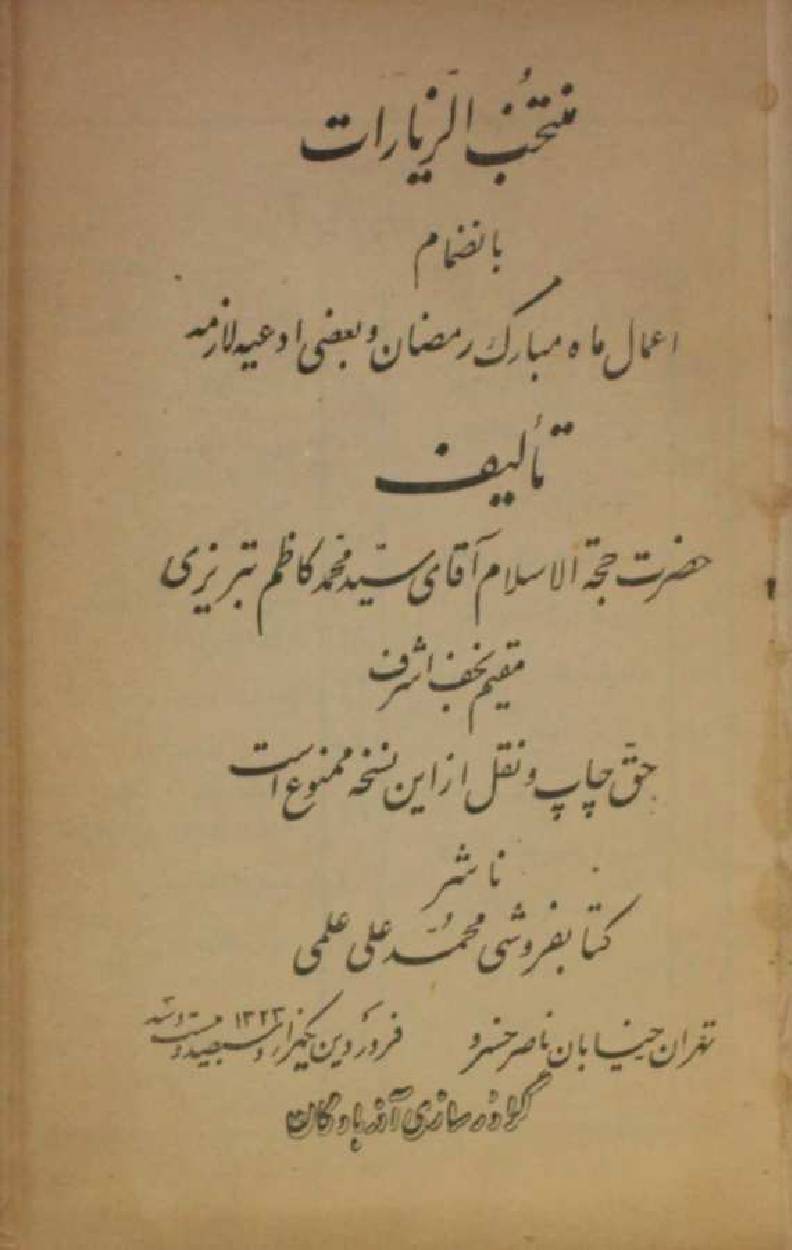 منتخب الزیارات
بانضمام
اعمال ماه مبارک رمضان و بعضی ادعیه لازمه
تألیف
حضرت حجة الاسلام آقای سیّد محمد کاظم تبریزی
مقیم نجف اشرف
حقّ چاپ و نقل از این نسخه ممنوع است
ناشر
کتابفروشی محمّد علی علمی
تهران خیابان ناصر خسرو فروردین یکهزار و سیصد و بیست و سه ۱۳۲۳
گراور سازی آذربادگان